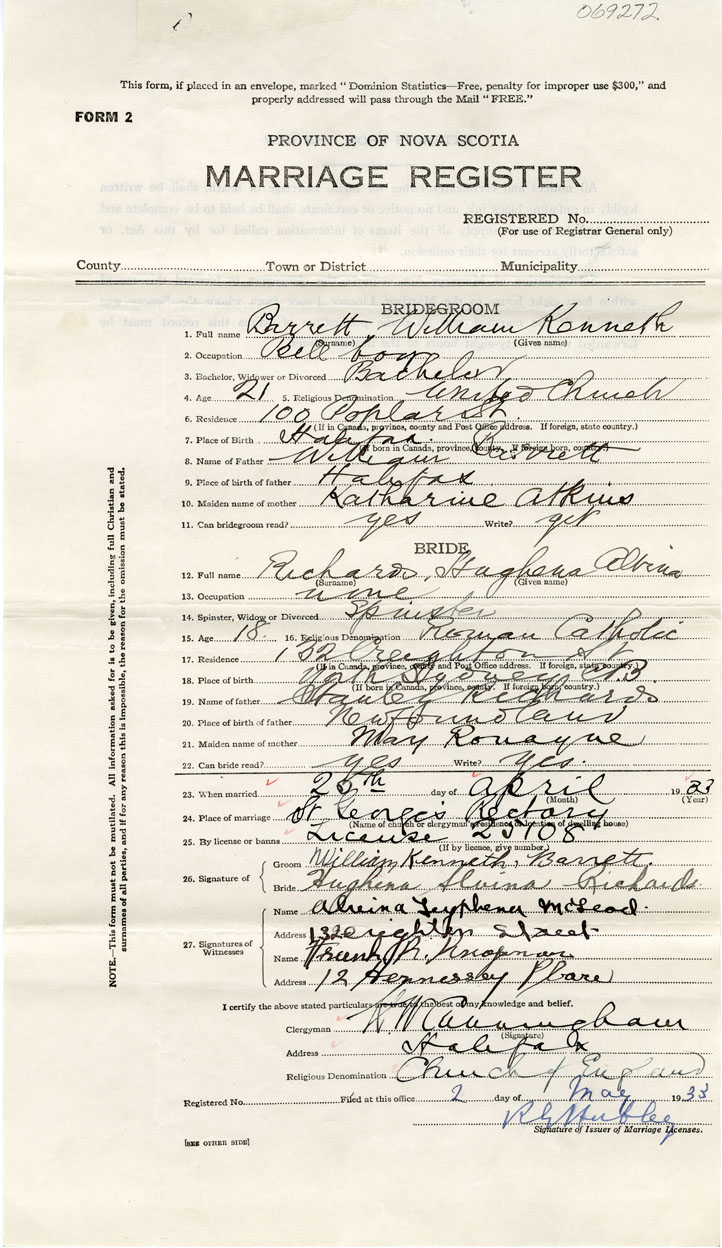 069272
This form, if placed in an envelope, marked "Dominion Statistics—Free, penalty for improper use $300," and
properly addressed will pass through the Mail "FREE."
FORM 2
PROVINCE OF NOVA SCOTIA
MARRIAGE REGISTER
REGISTERED No.
(For use of Registrar General only)
County Town or District Municipality
BRIDEGROOM
1. Full name Barrett William Kenneth
(Surname) (Given name)
2. Occupation Bell boy
3. Bachelor, Widower or Divorced Bachelor
4. Age 21 5. Religious Denomination United Church
6. Residence 100 Poplar St.
(If in Canada, province, county and Post Office address. If foreign, state country.)
7. Place of Birth Halifax
(If born in Canada, province, county. If foreign born, country.)
8. Name of Father William Barrett
9. Place of birth of father Halifax
10. Maiden name of mother Katharine Atkins
11. Can bridegroom read? yes Write? yes
BRIDE
12. Full name Richards, Hughena Alvina
(Surname) (Given name)
13. Occupation none
14. Spinster, Widow or Divorced Spinster
15. Age 18 16. Religious Denomination Roman Catholic
17. Residence 132 Creighton St
(If in Canada, province, county and Post Office address. If foreign, state country.)
18. Place of birth North Sydney C.B.
(If born in Canada, province, county. If foreign born, country.)
19. Name of father Stanley Richards
20. Place of birth of father Newfoundland
21. Maiden name of mother May Ronayne
22. Can bride read? yes Write? yes.
23. When married 25th day of April 1933
(Month) (Year)
24. Place of marriage St George's Rectory
(Name of church or clergyman's residence or location of dwelling house)
25. By license or banns License 25108
(If by licence, give number)
26. Signature of
Groom William Kenneth Barrett.
Bride Hughena Alvina Richards
27. Signatures of Witnesses
Name Alvina McLeod.
Address 132 Creighton Street
Name Frank R.
Address 12 Hennessey Place
I certify the above stated particulars are true to the best of my knowledge and belief.
Clergyman Cunningham
(Signature)
Address Halifax
Religious Denomination Church of England
Registered No. Filed at this office 2 day of May 1933
Signature of Issuer of Marriage Licenses.
[SEE OTHER SIDE]
NOTE.—This form must not be mutilated. All information asked for is to be given, including full Christian and
surnames of all parties, and if for any reason this is impossible, the reason for the omission must be stated.